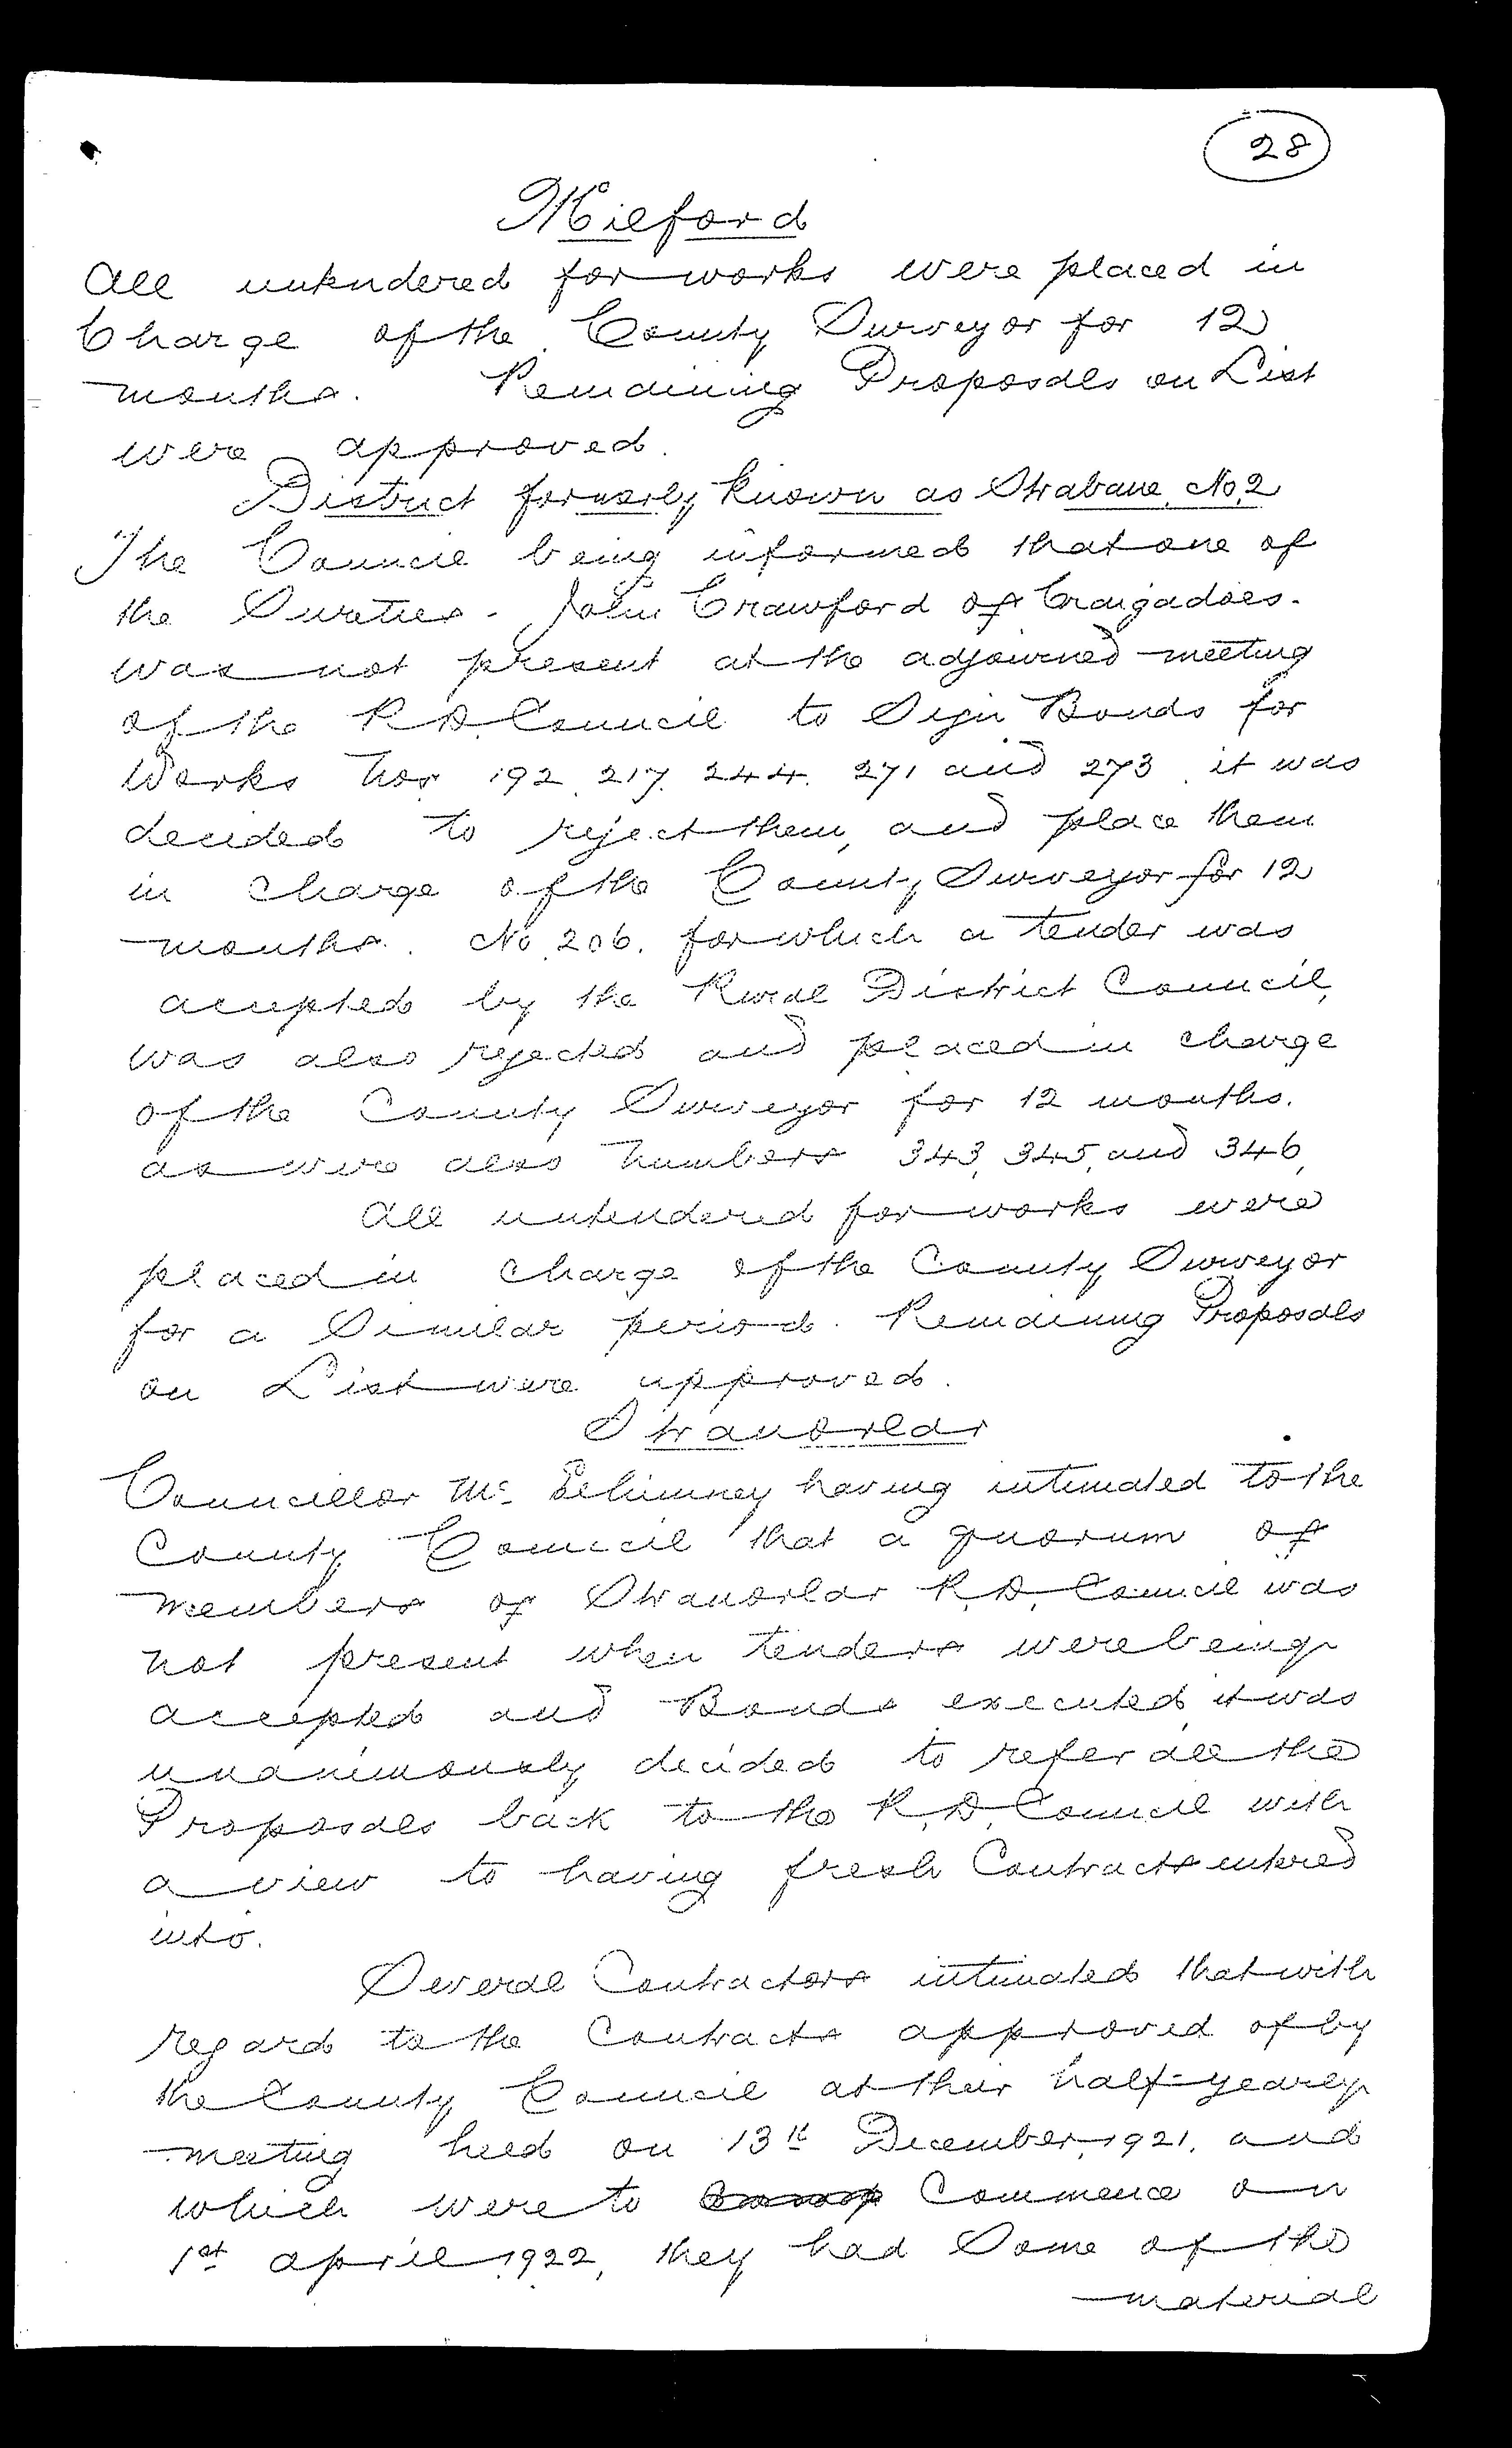 28
Milford
All untendered for works were placed in
Charge of the County Surveyor for 12
months. Remaining Proposals on List
were approved.
District formerly known as Strabane No 2
The Council being informed that one of
the Sureties - John Crawford of Craigadoes -
was not present at the adjourned meeting
of the R.D. Council to Sign Bonds for
Works Nos 192. 217. 244. 271 and 273, it was
decided to reject them, and place them
in charge of the County Surveyor for 12
months. No 206. for which a tender was
accepted by the Rural District Council,
was also rejected and placed in charge
of the County Surveyor for 12 months.
as were also numbers 343, 345, and 346,
All untendered for works were
placed in charge of the County Surveyor
for a Similar period. Remaining Proposals
on List were approved.
Stranorlar
Councillor Mc Elhinney having intimated to the
County Council that a quorum of
members of Stranorlar R.D. Council was
not present when tenders were being
accepted and Bonds executed, it was
unanimously decided to refer all the
Proposals back to the R.D. Council with
a view to having fresh Contracts entered
into.
Several Contractors intimated that with
regard to the Contracts approved of by
the County Council at their half-yearly
meeting held on 13th December, 1921, and
which were to Commence on
1st april 1922, they had Some of the
material